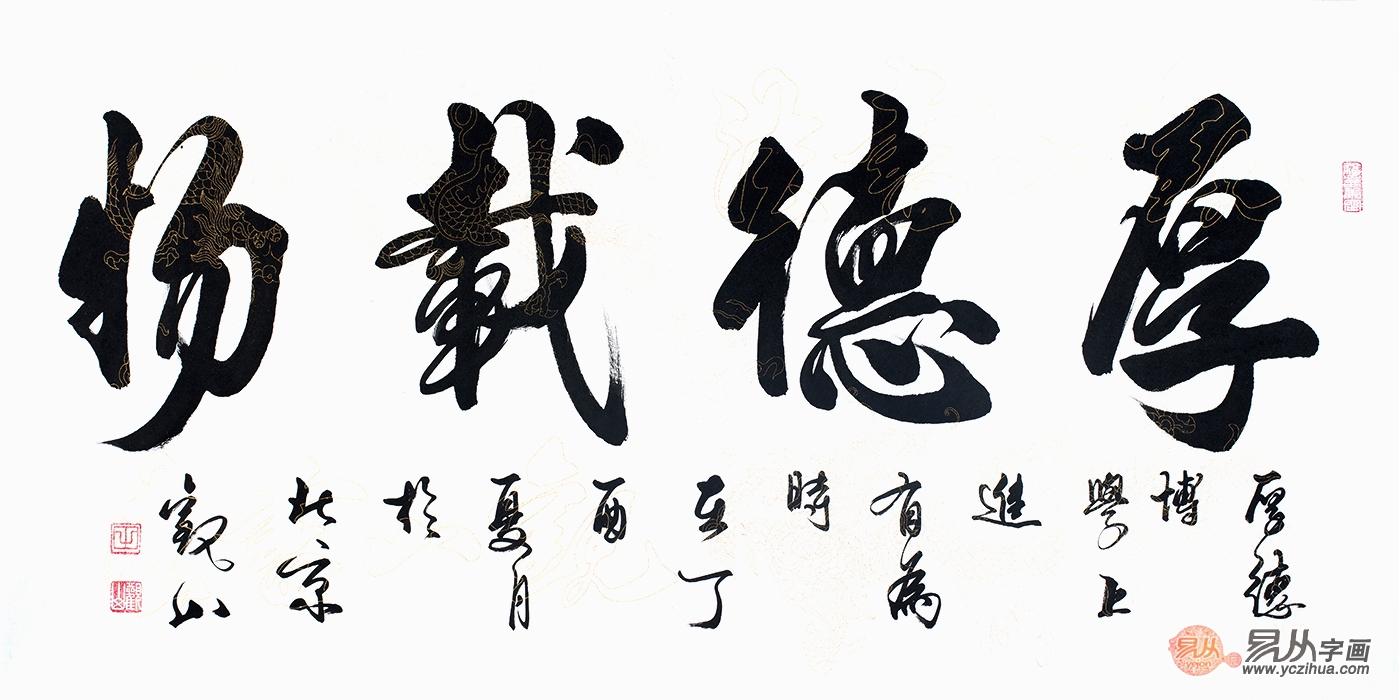 厚德載物
厚德
博
學上
進
有為
時
在丁
酉
夏月
於
北京
觀山
易从字画
www.yczihua.com